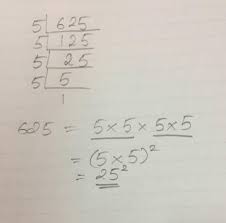 5 | 625
5 | 125
5 | 25
5 | 5
1
625 = 5×5 × 5×5
= (5×5)²
= 25²